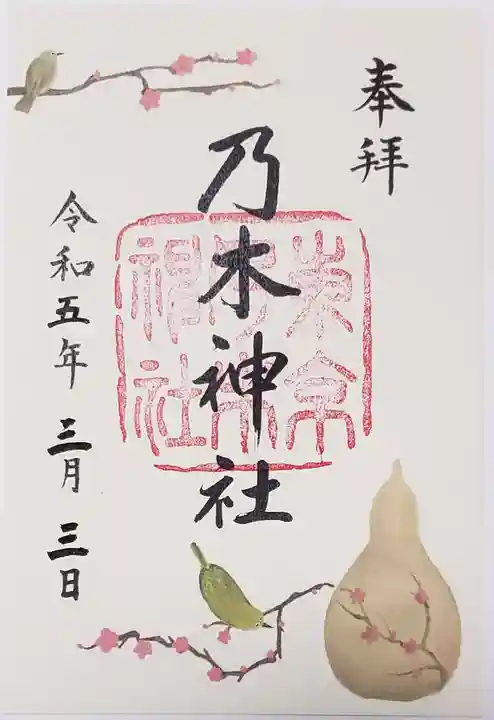 奉拝
乃木神社
東京乃木神社
令和五年 三月 三日